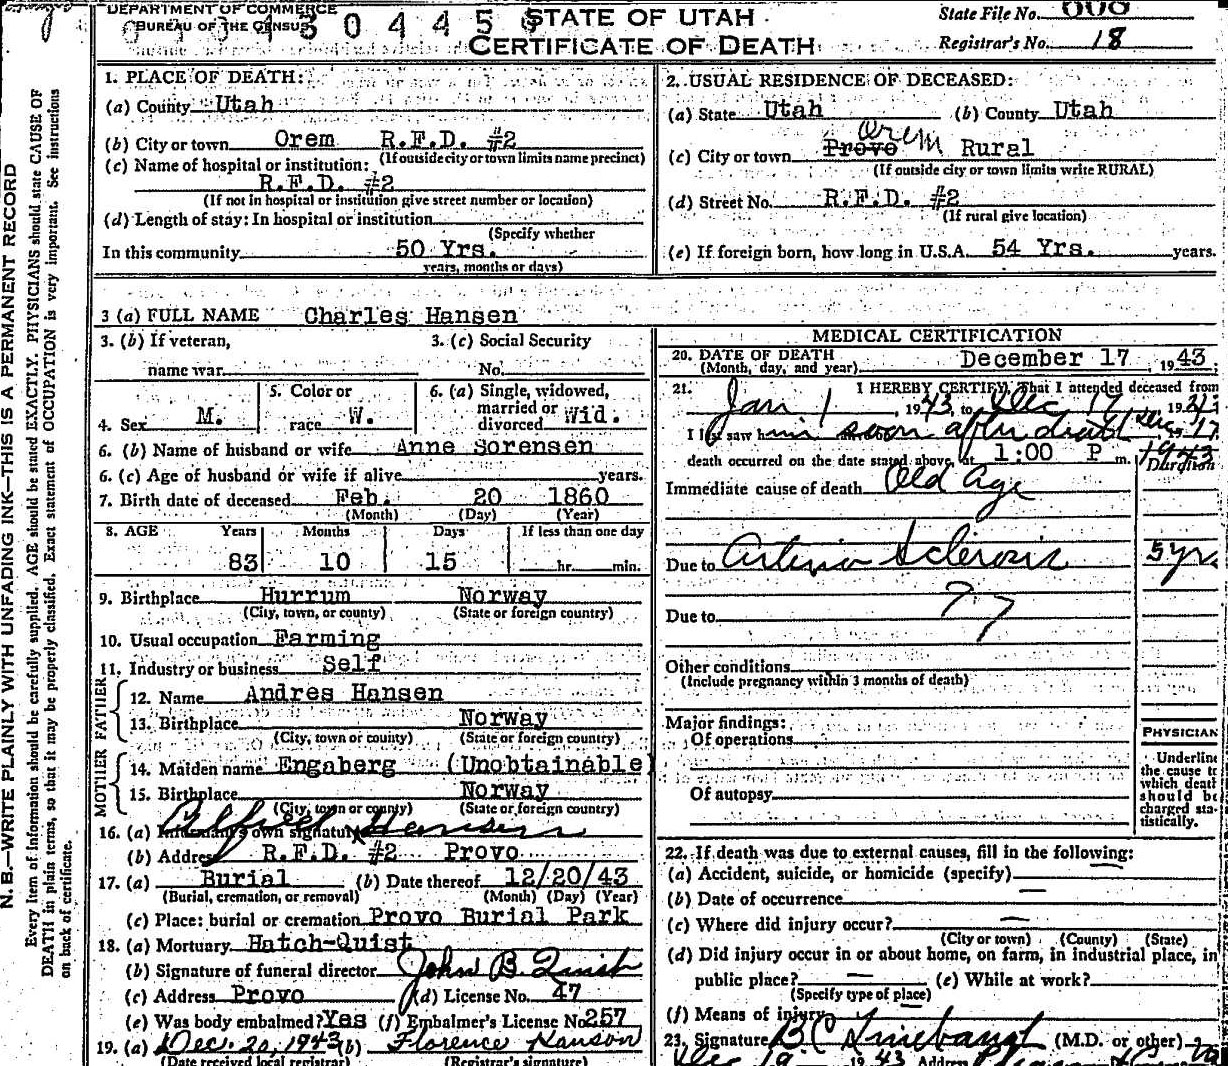 DEPARTMENT OF COMMERCE
BUREAU OF THE CENSUS
STATE OF UTAH
CERTIFICATE OF DEATH
State File No.
Registrar's No. 18
N. B.—WRITE PLAINLY WITH UNFADING INK—THIS IS A PERMANENT RECORD
Every item of information should be carefully supplied. AGE should be stated EXACTLY. PHYSICIANS should state CAUSE OF
DEATH in plain terms, so that it may be properly classified. Exact statement of OCCUPATION is very important. See instructions
on back of certificate.
1. PLACE OF DEATH:
(a) County Utah
(b) City or town Orem R.F.D. #2
(If outside city or town limits name precinct)
(c) Name of hospital or institution:
R.F.D. #2
(If not in hospital or institution give street number or location)
(d) Length of stay: In hospital or institution
(Specify whether
In this community 50 Yrs.
years, months or days)
2. USUAL RESIDENCE OF DECEASED:
(a) State Utah (b) County Utah
(c) City or town Provo Orem Rural
(If outside city or town limits write RURAL)
(d) Street No. R.F.D. #2
(If rural give location)
(e) If foreign born, how long in U.S.A. 54 Yrs. years.
3 (a) FULL NAME Charles Hansen
3. (b) If veteran,
name war
3. (c) Social Security
No.
4. Sex M.
5. Color or
race W.
6. (a) Single, widowed,
married or
divorced Wid.
6. (b) Name of husband or wife Anne Sorensen
6. (c) Age of husband or wife if alive years.
7. Birth date of deceased Feb. 20 1860
(Month) (Day) (Year)
8. AGE Years Months Days If less than one day
83 10 15 hr. min.
9. Birthplace Hurrum Norway
(City, town, or county) (State or foreign country)
10. Usual occupation Farming
11. Industry or business Self
FATHER
12. Name Andres Hansen
13. Birthplace Norway
(City, town or county) (State or foreign country)
MOTHER
14. Maiden name Engaberg (Unobtainable)
15. Birthplace Norway
(City, town or county) (State or foreign country)
16. (a) Informant's own signature x Hansen
(b) Address R.F.D. #2 Provo
17. (a) Burial (b) Date thereof 12/20/43
(Burial, cremation, or removal) (Month) (Day) (Year)
(c) Place: burial or cremation Provo Burial Park
18. (a) Mortuary Hatch-Quist
(b) Signature of funeral director John B. Quist
(c) Address Provo (d) License No. 47
(e) Was body embalmed? Yes (f) Embalmer's License No. 257
19. (a) Dec. 20, 1943 (b) Florence Hanson
(Date received local registrar) (Registrar's signature)
MEDICAL CERTIFICATION
20. DATE OF DEATH December 17, 1943
(Month, day, and year)
21. I HEREBY CERTIFY, That I attended deceased from
Jan. 1, 1943, to Dec 17, 19
I last saw him soon after death Dec 17
1943
death occurred on the date stated above, at 1:00 P m.
Duration
Immediate cause of death Old Age
Due to Arterio Sclerosis 5 yrs
Due to
Other conditions
(Include pregnancy within 3 months of death)
Major findings:
Of operations
Of autopsy
PHYSICIAN
Underline
the cause to
which death
should be
charged sta-
tistically.
22. If death was due to external causes, fill in the following:
(a) Accident, suicide, or homicide (specify)
(b) Date of occurrence
(c) Where did injury occur?
(City or town) (County) (State)
(d) Did injury occur in or about home, on farm, in industrial place, in
public place? (e) While at work?
(Specify type of place)
(f) Means of injury
23. Signature (M.D. or other)
Dec 19 1943 Address